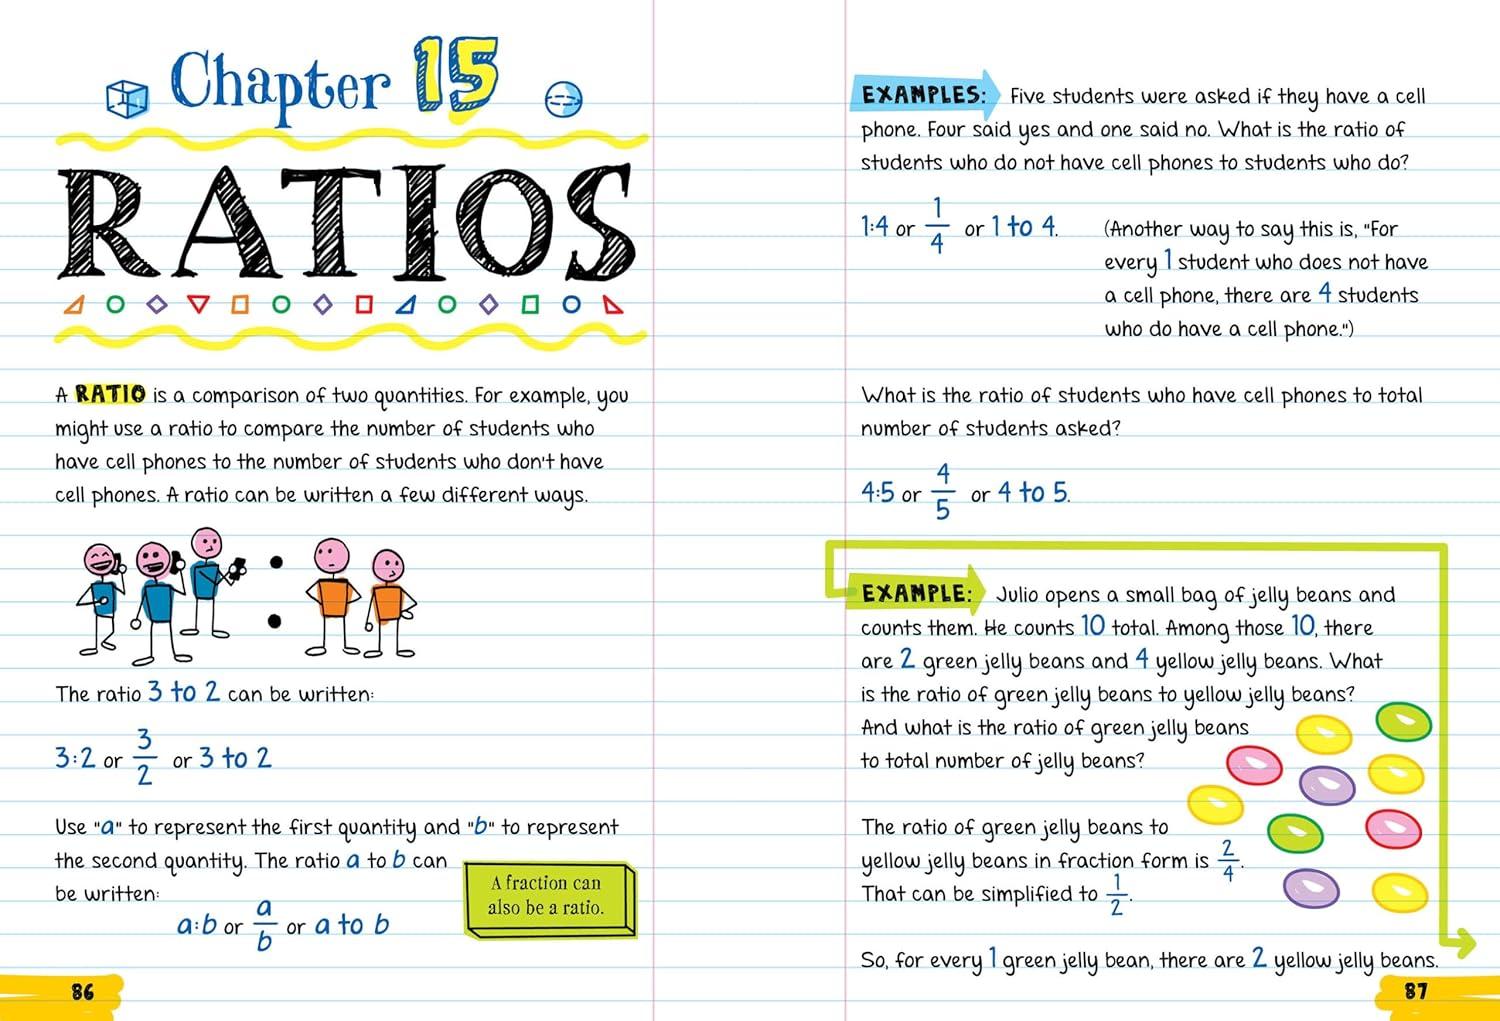 Chapter 15
RATIOS
A RATIO is a comparison of two quantities. For example, you
might use a ratio to compare the number of students who
have cell phones to the number of students who don't have
cell phones. A ratio can be written a few different ways.
:
The ratio 3 to 2 can be written:
3:2 or 3/2 or 3 to 2
Use "a" to represent the first quantity and "b" to represent
the second quantity. The ratio a to b can
be written:
a:b or a/b or a to b
A fraction can
also be a ratio.
86
EXAMPLES: Five students were asked if they have a cell
phone. Four said yes and one said no. What is the ratio of
students who do not have cell phones to students who do?
1:4 or 1/4 or 1 to 4.
(Another way to say this is, "For
every 1 student who does not have
a cell phone, there are 4 students
who do have a cell phone.")
What is the ratio of students who have cell phones to total
number of students asked?
4:5 or 4/5 or 4 to 5.
EXAMPLE: Julio opens a small bag of jelly beans and
counts them. He counts 10 total. Among those 10, there
are 2 green jelly beans and 4 yellow jelly beans. What
is the ratio of green jelly beans to yellow jelly beans?
And what is the ratio of green jelly beans
to total number of jelly beans?
The ratio of green jelly beans to
yellow jelly beans in fraction form is 2/4.
That can be simplified to 1/2.
So, for every 1 green jelly bean, there are 2 yellow jelly beans.
87